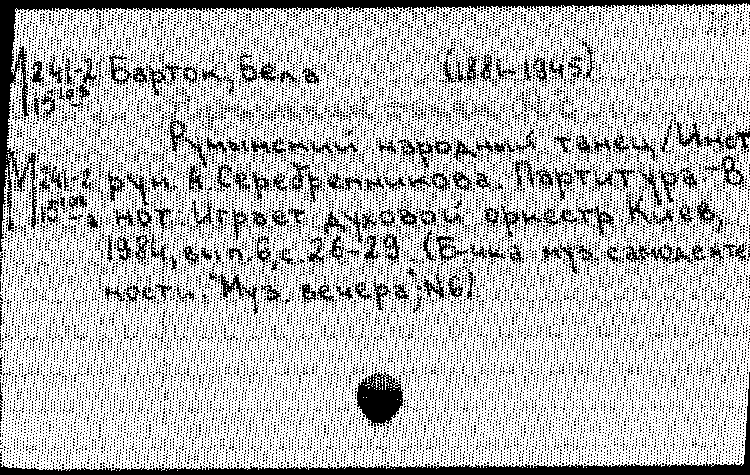 М 241-2 Барток, Бела (1881-1945)
15108
Румынский народный танец /Инст
М 241-2 рум. А. Серебренникова. Партитура - В
15108-а нот.: Играет духовой оркестр Киев,
1984, вып. 6, с. 26-29. (Б-чка муз. самодеяте
ности. "Муз. вечера"; №6)